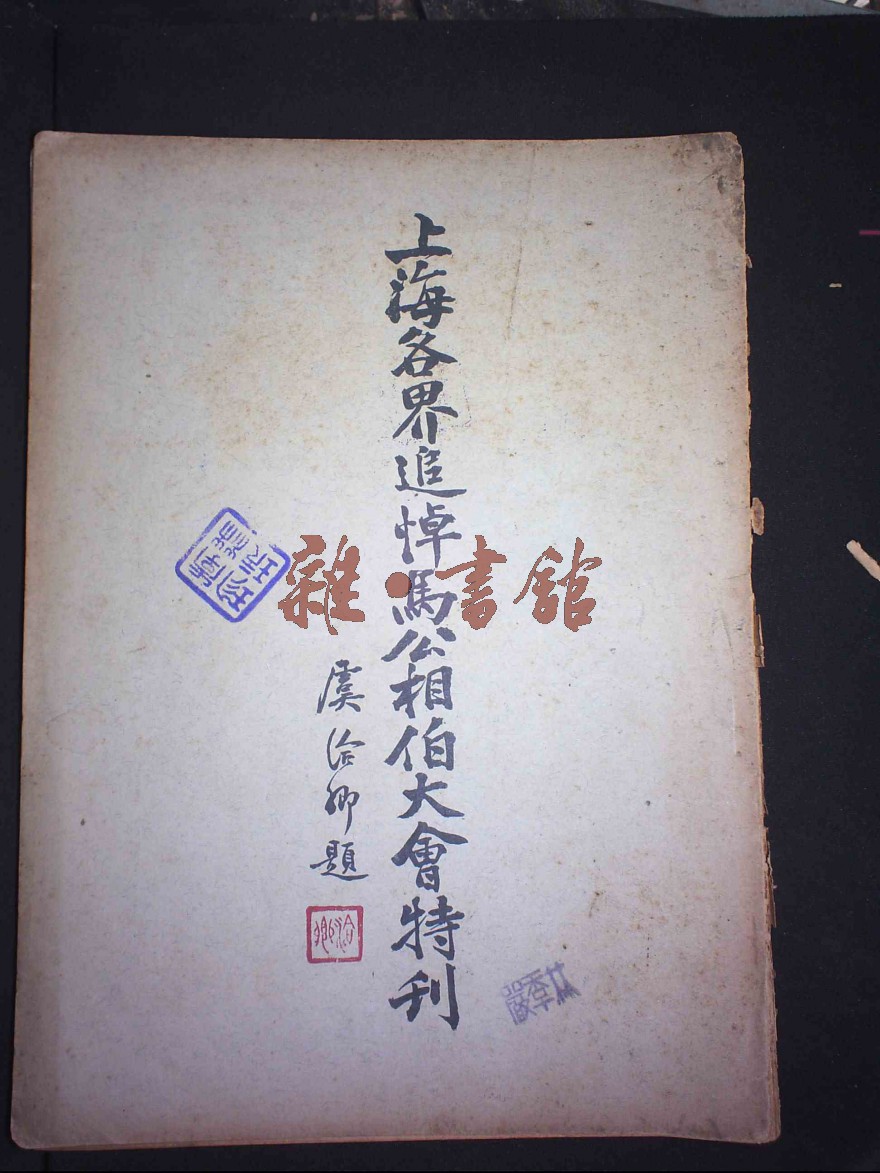 上海各界追悼馬公相伯大會特刊
虞洽卿題
洽卿
雜·書館